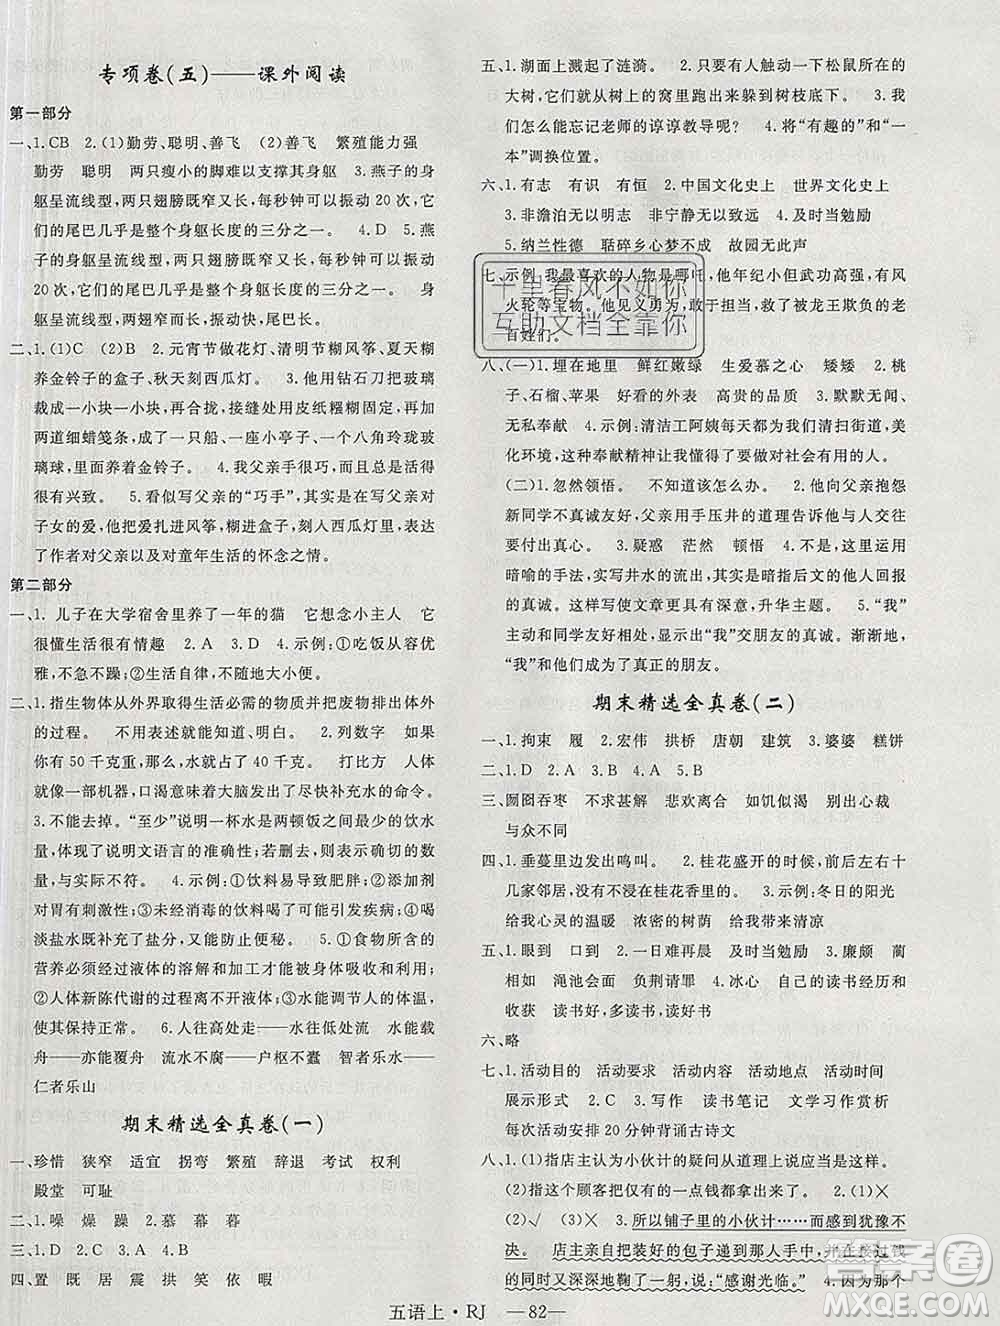 专项卷(五)——课外阅读
第一部分
一、1.CB 2.(1)勤劳、聪明、善飞 (2)善飞 繁殖能力强
勤劳 聪明 两只瘦小的脚难以支撑其身躯 3.燕子的身
躯呈流线型,两只翅膀既窄又长,每秒钟可以振动 20 次,
它们的尾巴几乎是整个身躯长度的三分之一。 4.D 5.燕
子的身躯呈流线型,两只翅膀既窄又长,每秒钟可以振动
20 次,它们的尾巴几乎是整个身躯长度的三分之一。 身
躯呈流线型,两翅窄而长,振动快,尾巴长。
二、1.(1)C (2)B 2.元宵节做花灯、清明节糊风筝、夏天糊
养金铃子的盒子、秋天刻西瓜灯。 3.他用钻石刀把玻璃
裁成一小块一小块,再合拢,接缝处用皮纸糨糊固定,再加
两道细蜡笺条,成了一只船、一座小亭子、一个八角玲珑玻
璃球,里面养着金铃子。 4.我父亲手很巧,而且总是活得
很有兴致。 5.看似写父亲的“巧手”,其实是在写父亲对
子女的爱,他把爱扎进风筝,糊进盒子,刻入西瓜灯里,表达
了作者对父亲以及对童年生活的怀念之情。
第二部分
一、1. 儿子在大学宿舍里养了一年的猫 它想念小主人 它
很懂生活很有情趣 2.A 3.D 4.示例:①吃饭从容优
雅,不急不躁;②生活自律,不随地大小便。
二、1.指生物体从外界取得生活必需的物质并使体内废物排出体外
的过程。 不用表达就能知道、明白。 2.列数字 如果你
有 50 千克重,那么,水就占了 40 千克。 打比方 人体
就像一部机器,口渴意味着大脑发出了尽快补充水分的命令。
3.不能去掉。“至少”说明一杯水是两顿饭之间最少的饮水
量,体现了说明文语言的准确性;若删去,则太绝对,
与实际不符。 4.示例:①饮料易导致肥胖;②添加剂对
胃有刺激性;③未经消毒的饮料可能引发疾病;④喝
淡盐水既补充了盐分,又防止便秘。 5.①食物所含的
营养必须经过液体的溶解和加工变成液体才能被吸收;
②人体新陈代谢的过程离不开液体;③调节人的体温,
使其保持正常。 6.人往高处走——水往低处流 水能载
舟——亦能覆舟 流水不腐——户枢不蠹 智者乐水——
仁者乐山
期末精选全真卷(一)
一、珍惜 狭窄 适宜 拐弯 繁殖 辞退 考试 权利
殿堂 可耻
二、1.噪 燥 躁 2.慕 幕 暮
三、1.D 2.C 3.A 4.B
四、置 既 居 震 拱 笑 依 暇
五、1.湖面上溅起了涟漪。 2.只要有人触动一下松鼠所在的
大树,它们就从树上的窝里跑出来躲到树枝底下。 3.我
们怎么能忘记老师的谆谆教导呢? 4.将“有趣的”和“一
本”调换位置。
六、1.有志 有识 有恒 2.中国文化史上 世界文化史上
3.非澹泊无以明志 非宁静无以致远 4.及时当勉励
5.纳兰性德 聒碎乡心梦不成 故园无此声
七、示例:我最喜欢的人物是哪吒,他年纪小但武功高强,有风
火轮等宝物。他见义勇为,敢于担当,救了被龙王欺负的老
百姓们。
八、(一)1.埋在地里 鲜红嫩绿 生爱慕之心 矮矮 2.桃
子、石榴、苹果 好看的外表 高贵的品格 3.默默无闻、
无私奉献 4.示例:清洁工阿姨每天都为我们清扫街道,美
化环境,这种奉献精神让我懂得了要做对社会有用的人。
(二)1.忽然领悟。 不知道该怎么办。 2.他抱怨
新同学不真诚友好,父亲用手压井的道理告诉他与人交往要
付出真诚。 3.疑惑 茫然 顿悟 4.不是,这里运用
暗喻的手法,写井水的流出,其实就是在暗喻后文“我”付出
的真诚。这样写使文章更具有深意,升华主题。 5.“我”
主动和同学友好相处,显示出“我”交朋友的真诚。渐渐地,
“我”和他们成为了真正的朋友。
期末精选全真卷(二)
一、1.拘束 履 2.宏伟 拱桥 唐朝 建筑 3.婆婆 糕饼
二、1.D 2.A 3.B 4.A 5.B
三、囫囵吞枣 不求甚解 悲欢离合 如饥似渴 别出心裁
与众不同
四、1.垂蔓里边发出鸣叫。 2.桂花盛开的时候,前后左右十
几家邻居,没有不浸在桂花香里的。 3.示例:冬日的阳光
给我心灵的温暖 浓密的树荫 给我带来清凉
五、1.眼到 口到 2.一日难再晨 及时当勉励 3.廉颇 蔺
相如 完璧归赵 渑池之会 负荆请罪 4.冰心 自己的读书经历和
收获 读书好,多读书,读好书
六、略
七、1.活动目的 活动主题 活动内容 活动地点 活动时间
展示形式 2.C 3.写作 读书笔记 文学习作赏析
每次活动安排 20 分钟背诵古诗文
八、1.(1)指店主认为小伙计的疑问从道理上说应当这样。
(2)指这个顾客把仅有的一点点钱都拿出来了。 2.(1)×
(2)√ (3)× 3.所以铺子里的小伙计……而感到犹豫不
决。 店主亲自把装好的包子递到那人手中,并在接过钱
后深深地鞠了一躬,说:“感谢光临。” 4.因为那个
五语上·RJ —82—
千里春风不如你
互助文档全靠你
答案圈
MXQE.COM